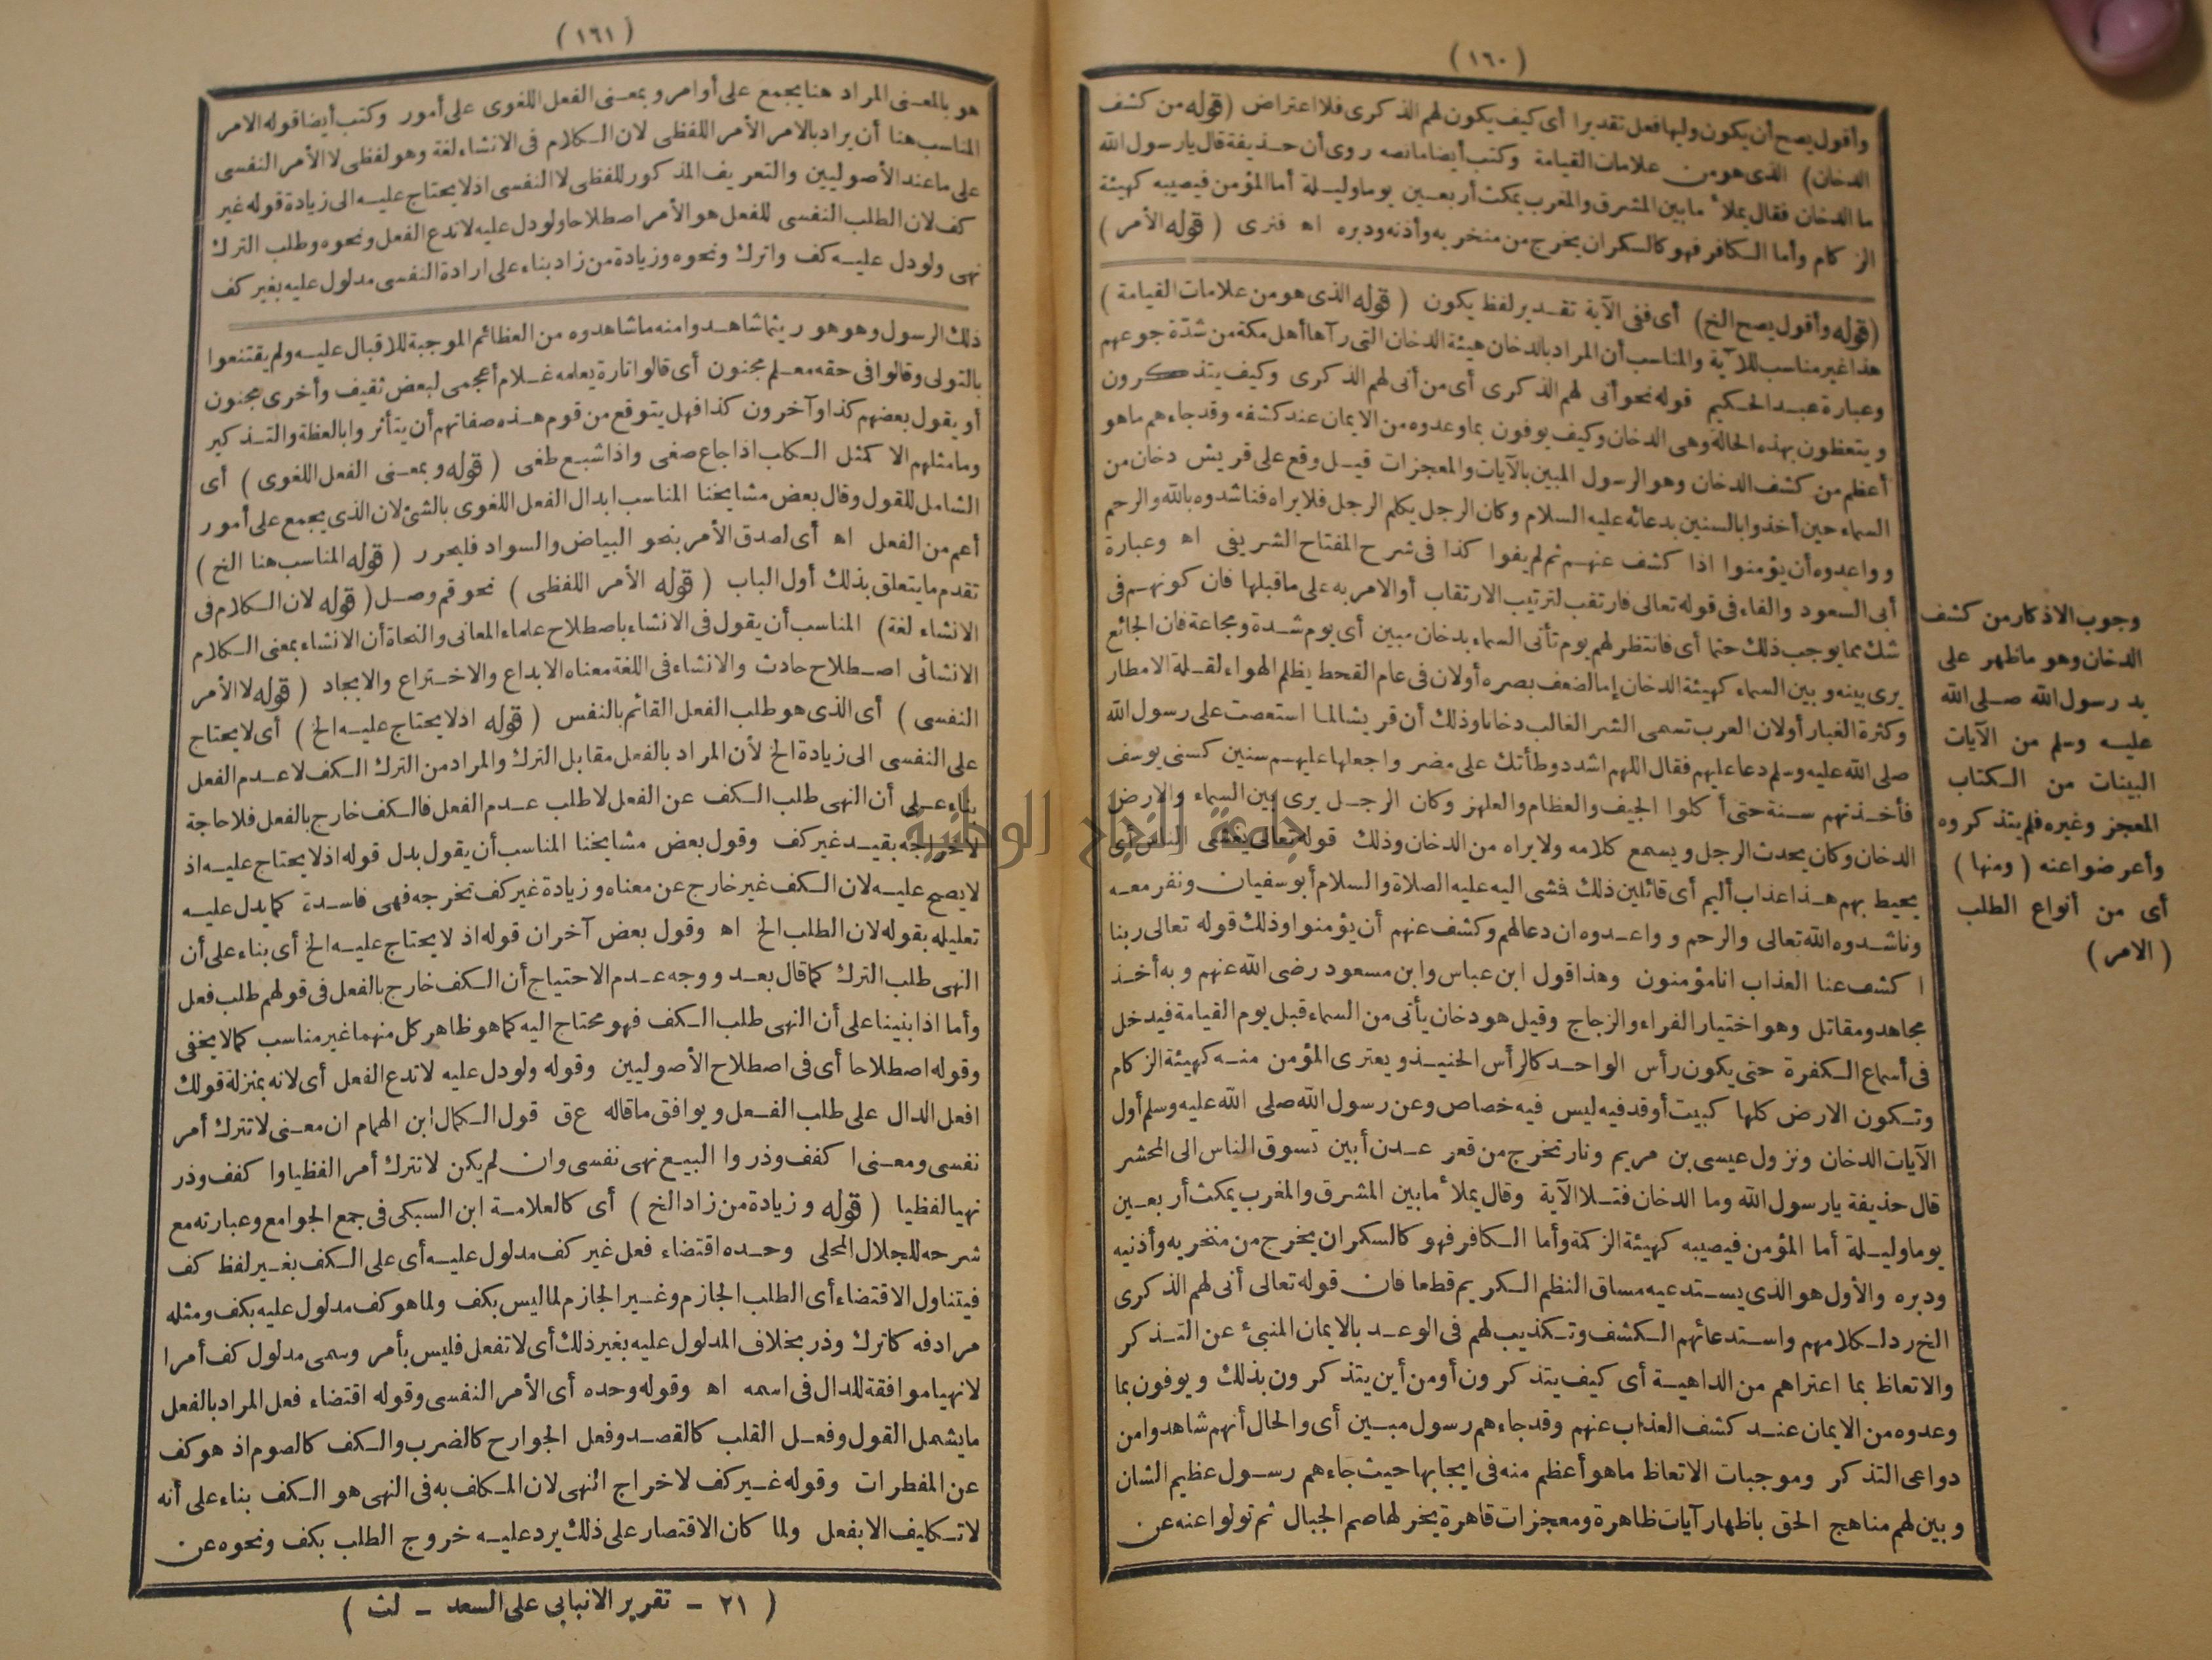 (١٦٠)
وأقول يصح أن يكون وليها فعل تقديرا أى كيف يكون لهم الذكرى فلا اعتراض (قوله من كشف
الدخان) الذى هو من علامات القيامة وكتب أيضا مانصه روى أن حذيفة قال يارسول الله
ما الدخان فقال يملأ مابين المشرق والمغرب يمكث أربعين يوما وليلة أما المؤمن فيصيبه كهيئة
الزكام وأما الكافر فهو كالسكران يخرج من منخر به وأذنه ودبره اه فنرى (قوله الأمر)
(قوله وأقول يصح الخ) أى ففى الآية تقدير لفظ يكون (قوله الذى هو من علامات القيامة)
هذا غير مناسب للآية والمناسب أن المراد بالدخان هيئة الدخان التى رآها أهل مكة من شدة جوعهم
وعبارة عبد الحكيم قوله نحو أنى لهم الذكرى أى من أنى لهم الذكرى وكيف يتذكرون
ويتعظون بهذه الحالة وهى الدخان وكيف يوفون بما وعدوه من الايمان عند كشفه وقد جاءهم ماهو
أعظم من كشف الدخان وهو الرسول المبين بالآيات والمعجزات قيل وقع على قريش دخان من
السماء حين أخذوا بالسنين بدعائه عليه السلام وكان الرجل يكلم الرجل فلا يراه فناشدوه بالله والرحم
وواعدوه أن يؤمنوا اذا كشف عنهم ثم لم يفوا كذا فى شرح المفتاح الشريفى اه وعبارة
أبى السعود والفاء فى قوله تعالى فارتقب لترتيب الارتقاب أو الامر به على ماقبلها فان كونهم فى
شك مما يوجب ذلك حتما أى فانتظر لهم يوم تأتى السماء بدخان مبين أى يوم شدة ومجاعة فان الجائع
يرى بينه وبين السماء كهيئة الدخان إما لضعف بصره أو لان فى عام القحط يظلم الهواء لقلة الامطار
وكثرة الغبار أو لان العرب تسمى الشر الغالب دخانا وذلك أن قريشا لما استعصت على رسول الله
صلى الله عليه وسلم دعا عليهم فقال اللهم اشدد وطأتك على مضر واجعلها عليهم سنين كسنى يوسف
فأخذتهم سنة حتى أكلوا الجيف والعظام والعلهز وكان الرجل يرى بين السماء والارض
الدخان وكان يحدث الرجل ويسمع كلامه ولا يراه من الدخان وذلك قوله تعالى يغشى الناس أى
يحيط بهم هذا عذاب أليم أى قائلين ذلك فمشى اليه عليه الصلاة والسلام أبو سفيان ونفر معه
وناشدوه الله تعالى والرحم وواعدوه ان دعا لهم وكشف عنهم أن يؤمنوا وذلك قوله تعالى ربنا
اكشف عنا العذاب انا مؤمنون وهذا قول ابن عباس وابن مسعود رضى الله عنهم وبه أخذ
مجاهد ومقاتل وهو اختيار الفراء والزجاج وقيل هو دخان يأتى من السماء قبل يوم القيامة فيدخل
فى أسماع الكفرة حتى يكون رأس الواحد كالرأس الحنيذ ويعترى المؤمن منه كهيئة الزكام
وتكون الارض كلها كبيت أوقد فيه ليس فيه خصاص وعن رسول الله صلى الله عليه وسلم أول
الآيات الدخان ونزول عيسى بن مريم ونار تخرج من قعر عدن أبين تسوق الناس الى المحشر
قال حذيفة يارسول الله وما الدخان فتلا الآية وقال يملأ مابين المشرق والمغرب يمكث أربعين
يوما وليلة أما المؤمن فيصيبه كهيئة الزكمة وأما الكافر فهو كالسكران يخرج من منخريه وأذنيه
ودبره والأول هو الذى يستدعيه مساق النظم الكريم قطعا فان قوله تعالى أنى لهم الذكرى
الخ رد لكلامهم واستدعائهم الكشف وتكذيب لهم فى الوعد بالايمان المنبئ عن التذكر
والاتعاظ بما اعتراهم من الداهية أى كيف يتذكرون أو من أين يتذكرون بذلك ويوفون بما
وعدوه من الايمان عند كشف العذاب عنهم وقد جاءهم رسول مبين أى والحال أنهم شاهدوا من
دواعى التذكر وموجبات الاتعاظ ماهو أعظم منه فى ايجابها حيث جاءهم رسول عظيم الشان
وبين لهم مناهج الحق باظهار آيات ظاهرة ومعجزات قاهرة يخر لها صم الجبال ثم تولوا عنه عن
وجوب الاذكار من كشف
الدخان وهو ماظهر على
يد رسول الله صلى الله
عليه وسلم من الآيات
البينات من الكتاب
المعجز وغيره فلم يتذكروه
وأعرضوا عنه (ومنها)
أى من أنواع الطلب
(الامر)
(١٦١)
هو بالمعنى المراد هنا يجمع على أوامر وبمعنى الفعل اللغوى على أمور وكتب أيضا قوله الامر
المناسب هنا أن يراد بالامر الأمر اللفظى لان الكلام فى الانشاء لغة وهو لفظى لا الأمر النفسى
على ما عند الأصوليين والتعريف المذكور للفظى لا النفسى اذ لا يحتاج عليه الى زيادة قوله غير
كف لان الطلب النفسى للفعل هو الأمر اصطلاحا ولو دل عليه لا تدع الفعل ونحوه وطلب الترك
نهى ولو دل عليه كف واترك ونحوه وزيادة من زاد بناء على ارادة النفسى مدلول عليه بغير كف
ذلك الرسول وهو هو ريثما شاهدوا منه ماشاهدوه من العظائم الموجبة للاقبال عليه ولم يقتنعوا
بالتولى وقالوا فى حقه معلم مجنون أى قالوا تارة يعلمه غلام أعجمى لبعض ثقيف وأخرى مجنون
أو يقول بعضهم كذا وآخرون كذا فهل يتوقع من قوم هذه صفاتهم أن يتأثروا بالعظة والتذكير
وما مثلهم الا كمثل الكلب اذا جاع صغى واذا شبع طغى (قوله وبمعنى الفعل اللغوى) أى
الشامل للقول وقال بعض مشايخنا المناسب ابدال الفعل اللغوى بالشئ لان الذى يجمع على أمور
أعم من الفعل اه أى لصدق الأمر بنحو البياض والسواد فليحرر (قوله المناسب هنا الخ)
تقدم ما يتعلق بذلك أول الباب (قوله الأمر اللفظى) نحو قم وصل (قوله لان الكلام فى
الانشاء لغة) المناسب أن يقول فى الانشاء باصطلاح علماء المعانى والنحاة أن الانشاء بمعنى الكلام
الانشائى اصطلاح حادث والانشاء فى اللغة معناه الابداع والاختراع والايجاد (قوله لا الأمر
النفسى) أى الذى هو طلب الفعل القائم بالنفس (قوله اذ لا يحتاج عليه الخ) أى لا يحتاج
على النفسى الى زيادة الخ لأن المراد بالفعل مقابل الترك والمراد من الترك الكف لا عدم الفعل
بناء على أن النهى طلب الكف عن الفعل لا طلب عدم الفعل فالكف خارج بالفعل فلا حاجة
لاخراجه بقيد غير كف وقول بعض مشايخنا المناسب أن يقول بدل قوله اذ لا يحتاج عليه اذ
لا يصح عليه لان الكف غير خارج عن معناه وزيادة غير كف تخرجه فهى فاسدة كما يدل عليه
تعليله بقوله لان الطلب الخ اه وقول بعض آخر ان قوله اذ لا يحتاج عليه الخ أى بناء على أن
النهى طلب الترك كما قال بعد ووجه عدم الاحتياج أن الكف خارج بالفعل فى قولهم طلب فعل
وأما اذا بنينا على أن النهى طلب الكف فهو محتاج اليه كما هو ظاهر كل منهما غير مناسب كما لا يخفى
وقوله اصطلاحا أى فى اصطلاح الأصوليين وقوله ولو دل عليه لا تدع الفعل أى لانه بمنزلة قولك
افعل الدال على طلب الفعل ويوافق ماقاله ع ق قول الكمال ابن الهمام ان معنى لا تترك أمر
نفسى ومعنى اكفف وذروا البيع نهى نفسى وان لم يكن لا تترك أمر الفظيا واكفف وذر
نهيا لفظيا (قوله وزيادة من زاد الخ) أى كالعلامة ابن السبكى فى جمع الجوامع وعبارته مع
شرحه للجلال المحلى وحده اقتضاء فعل غير كف مدلول عليه أى على الكف بغير لفظ كف
فيتناول الاقتضاء أى الطلب الجازم وغير الجازم لما ليس بكف ولما هو كف مدلول عليه بكف ومثله
مرادفه كاترك وذر بخلاف المدلول عليه بغير ذلك أى لا تفعل فليس بأمر وسمى مدلول كف أمرا
لا نهيا موافقة للدال فى اسمه اه وقوله وحده أى الأمر النفسى وقوله اقتضاء فعل المراد بالفعل
مايشمل القول وفعل القلب كالقصد وفعل الجوارح كالضرب والكف كالصوم اذ هو كف
عن المفطرات وقوله غير كف لاخراج النهى لان المكلف به فى النهى هو الكف بناء على أنه
لا تكليف الا بفعل ولما كان الاقتصار على ذلك يرد عليه خروج الطلب بكف ونحوه عن
(٢١ - تقرير الانبابى على السعد - لث)
جامعة النجاح الوطنية